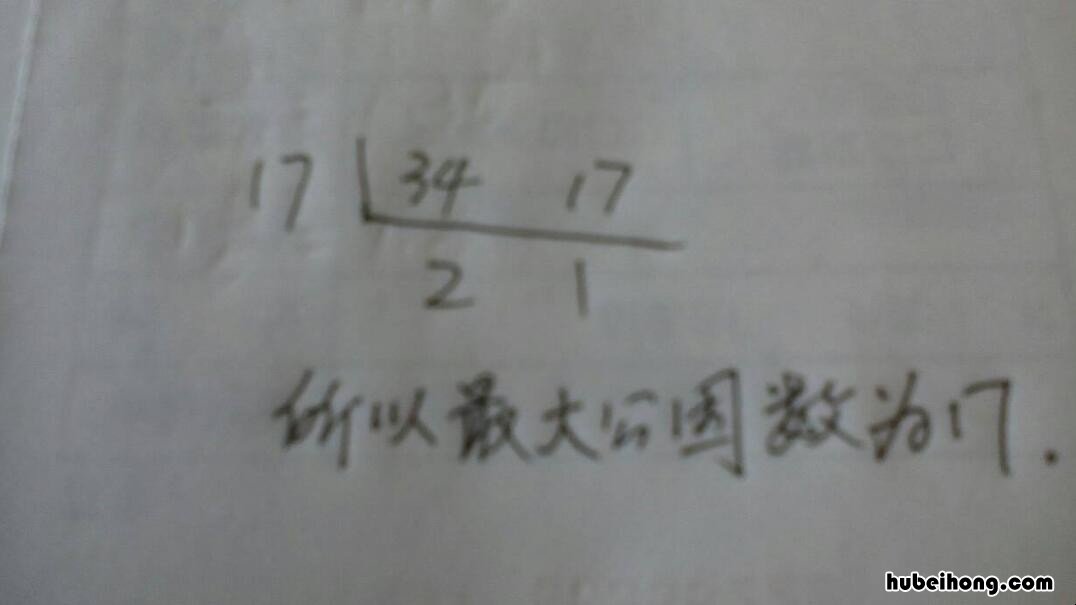 17 34 17
2 1
所以最大公因数为17.
hubeihong.com